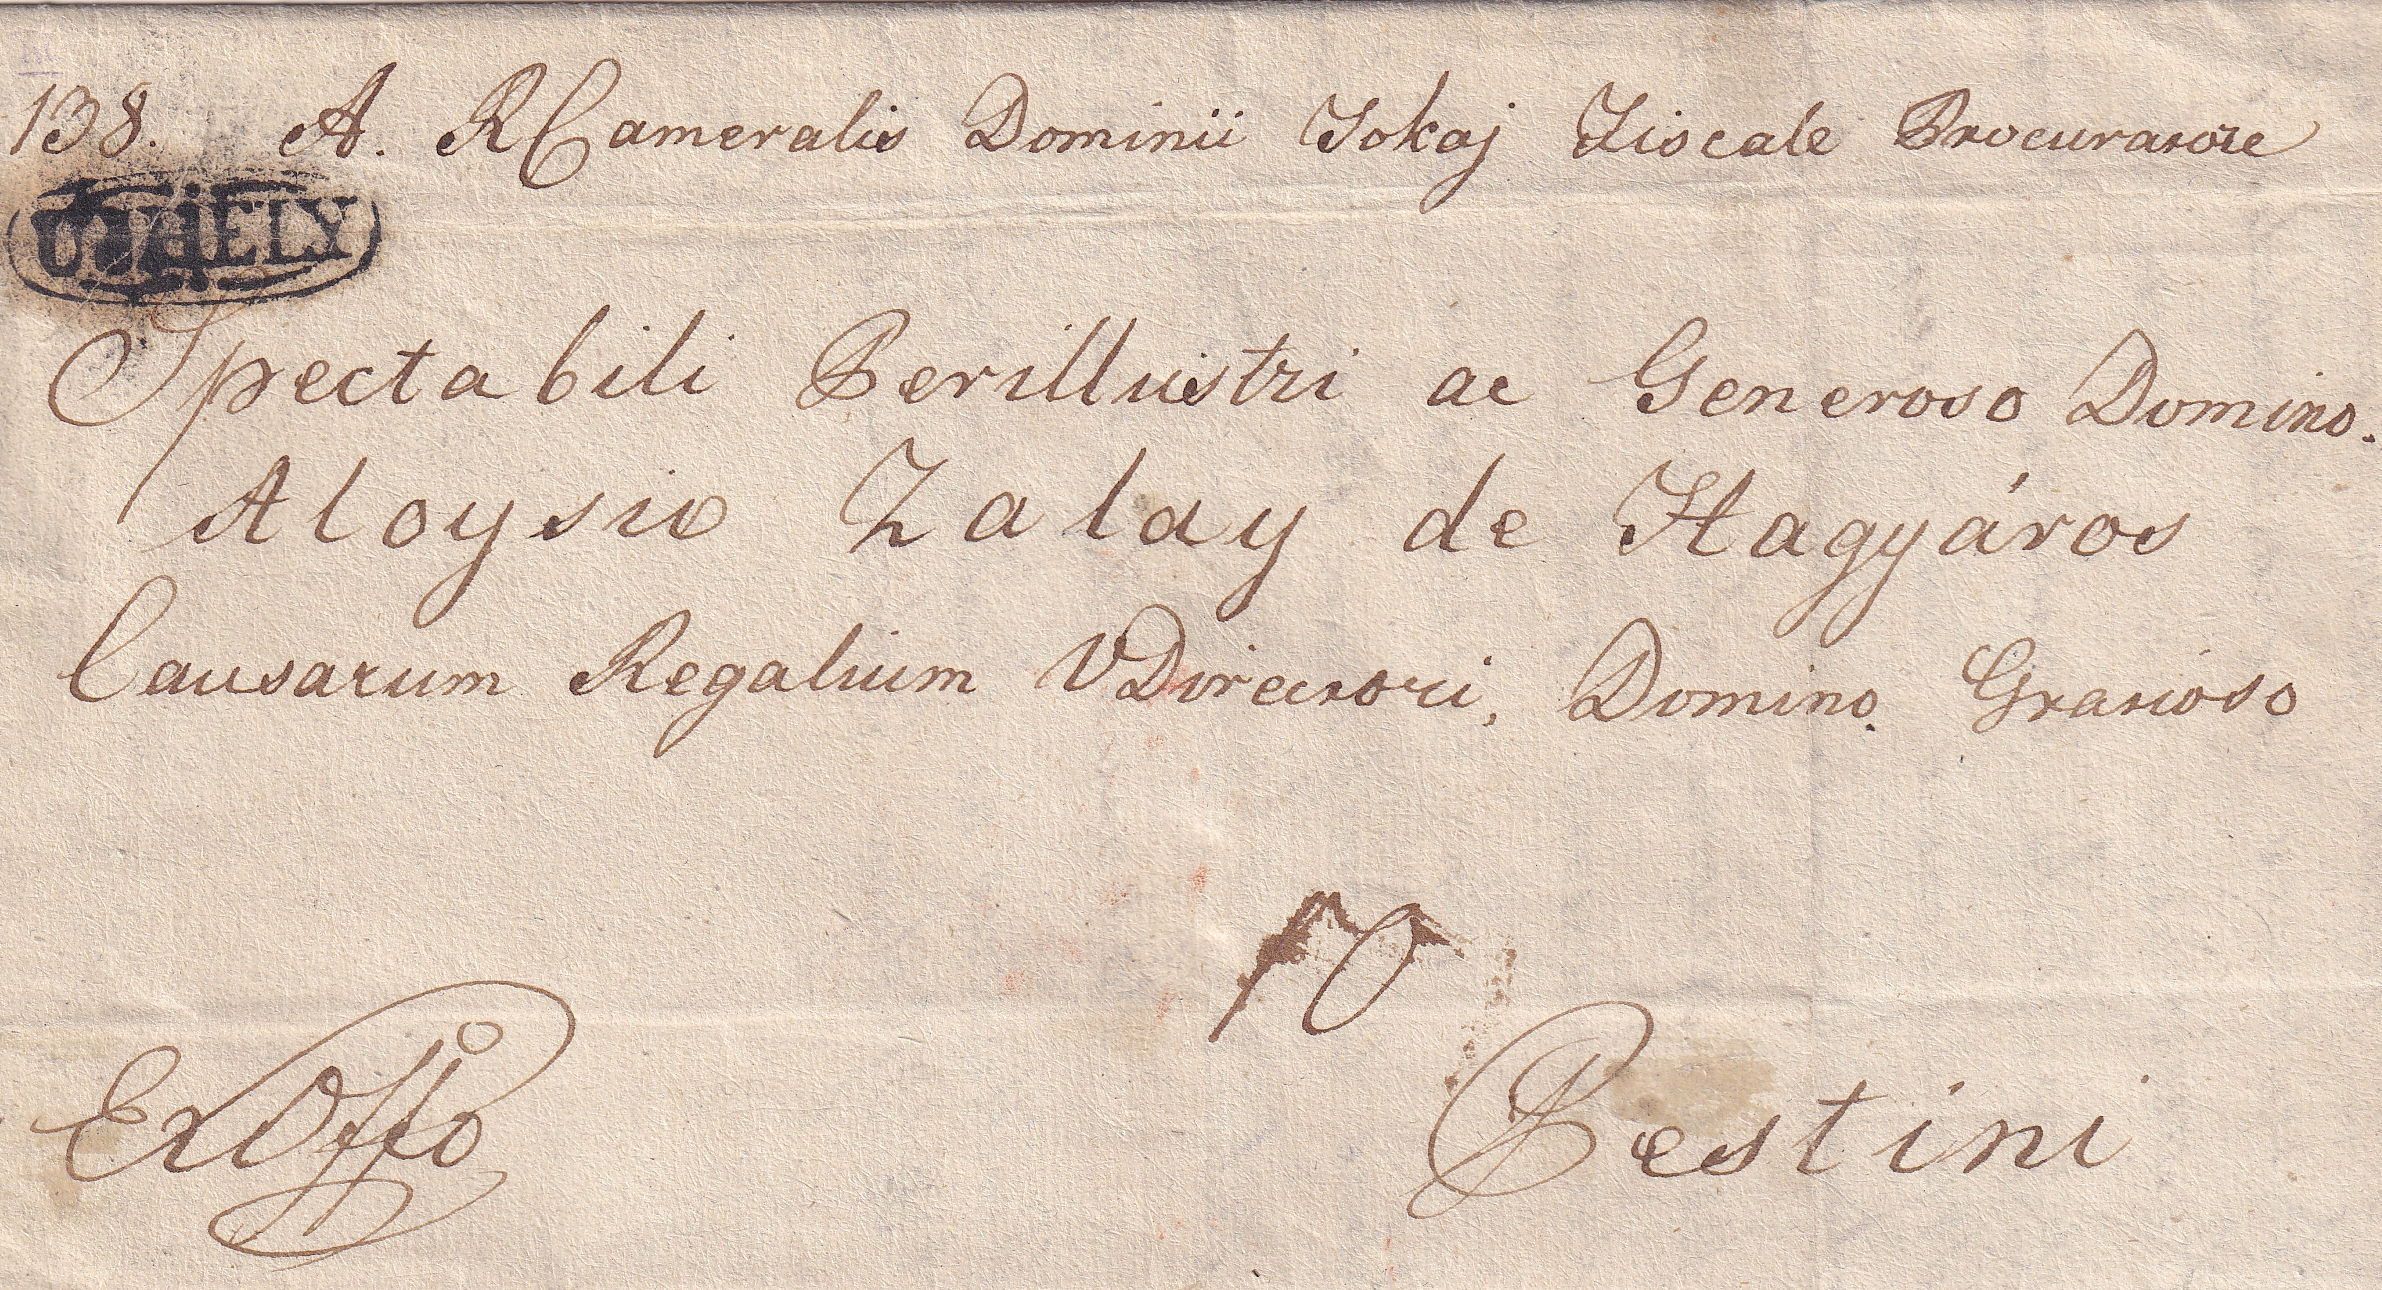 138. A. R Cameralis Dominii Tokaj Fiscale Procuratore
UJHELY
Spectabili Perillustri ac Generoso Domino.
Aloysio Zalay de Hagyáros
Causarum Regalium VDirectori, Domino Gratioso
10
Ex Offo
Pestini